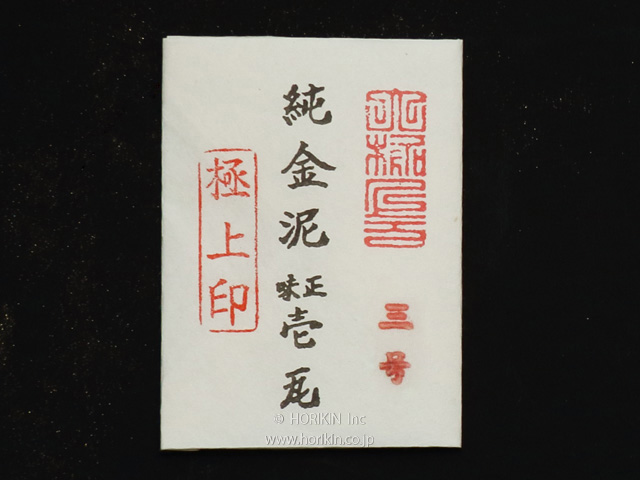 三号
純金泥正味壱瓦
極上印
© HORIKIN Inc
www.horikin.co.jp